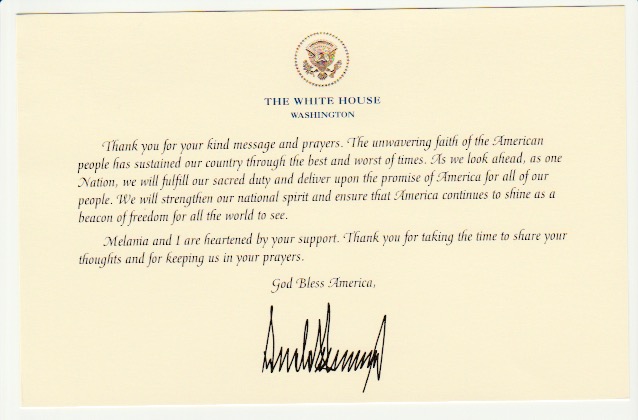 THE WHITE HOUSE
WASHINGTON
Thank you for your kind message and prayers. The unwavering faith of the American
people has sustained our country through the best and worst of times. As we look ahead, as one
Nation, we will fulfill our sacred duty and deliver upon the promise of America for all of our
people. We will strengthen our national spirit and ensure that America continues to shine as a
beacon of freedom for all the world to see.
Melania and I are heartened by your support. Thank you for taking the time to share your
thoughts and for keeping us in your prayers.
God Bless America,